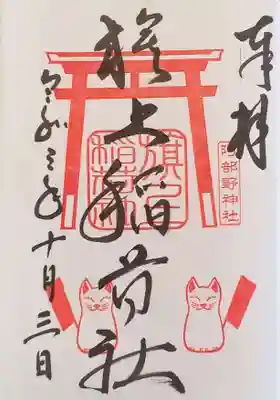 奉拝
阿部野神社
旗上稲荷社
令和三年十月三日